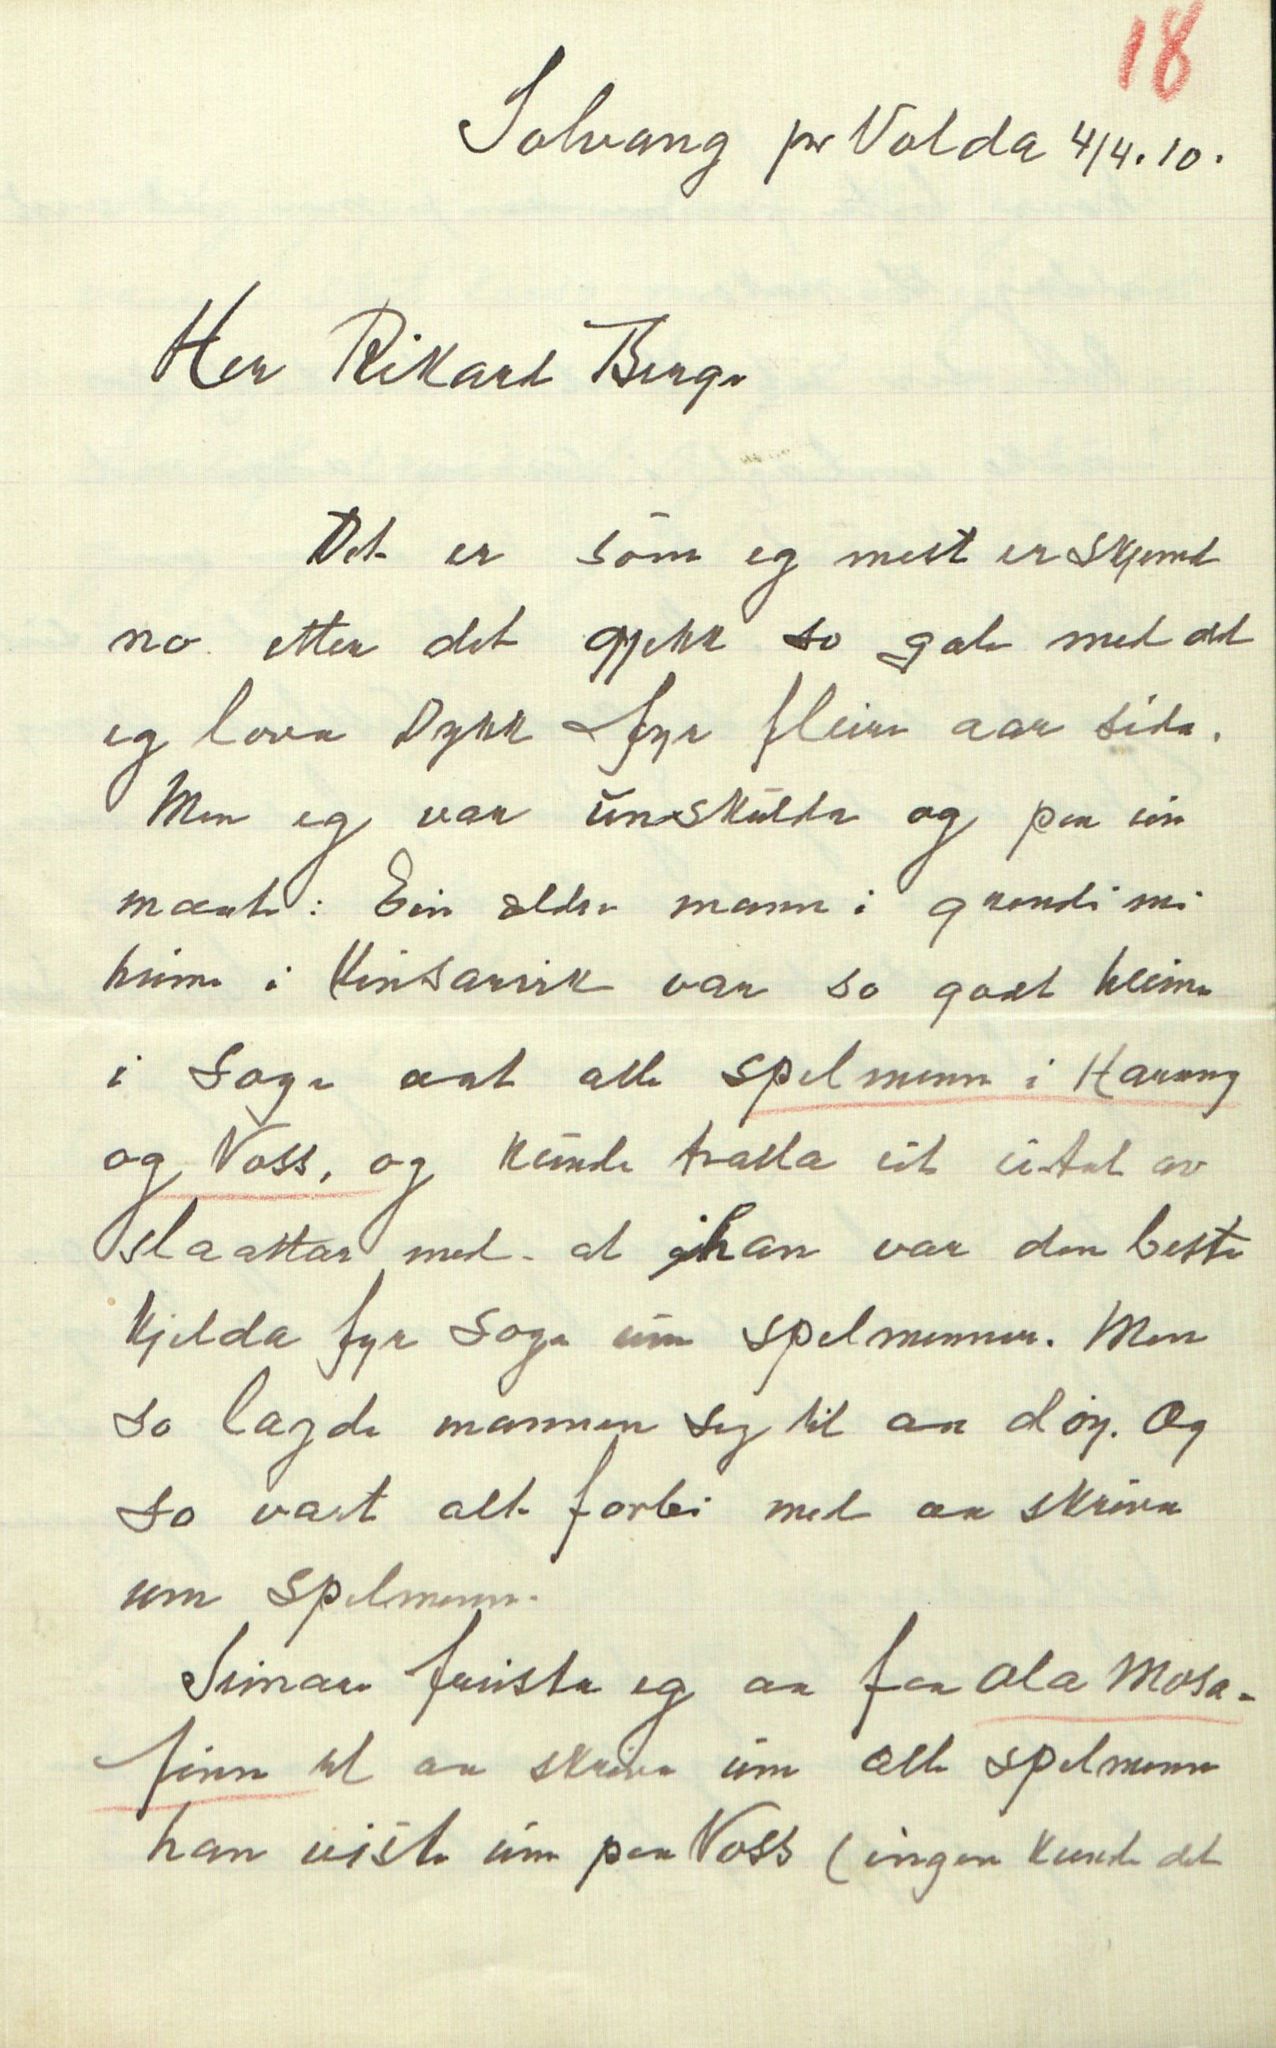 18
Solvang pr Volda 4/4. 10.
Her Rikard Berge
Det er som eg mest er skjemd
no etter det gjekk so gale med det
eg lova Dykk fyr fleire aar sida.
Men eg var unskulda og paa ein
maate: Ein eldre mann i grendi mi
heime i Kinsarvik var so godt heime
i soga aat alle spelmenn i Harang
og Voss, og kunde tralla eit utal av
slaattar med. at han var den beste
kjelda fyr soga um spelmenner. Men
so lagde mannen seg til aa døy. Og
so vart alt forbi med aa skriva
um spelmenn.
Seinare freista eg aa faa Ola Mosa-
finn til aa skriva um alle spelmenn
han viste um paa Voss (ingen kunde det